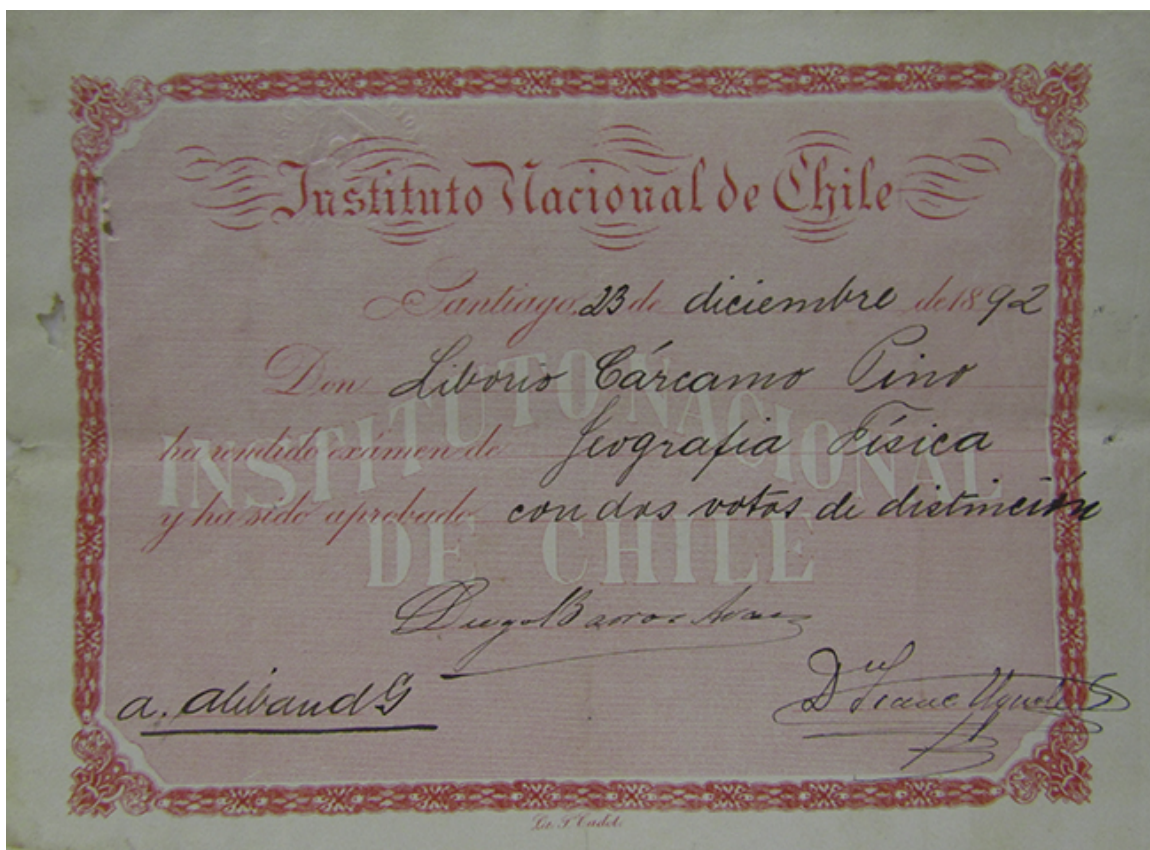 Instituto Nacional de Chile
Santiago, 23 de diciembre de 1892
Don Liborio Cárcamo Pino
ha rendido exámen de Jeografia Física
y ha sido aprobado con dos votos de distinción
INSTITUTO NACIONAL
DE CHILE
Diego Barros Aran
a. Alibaud G
Lit. F. Cadot